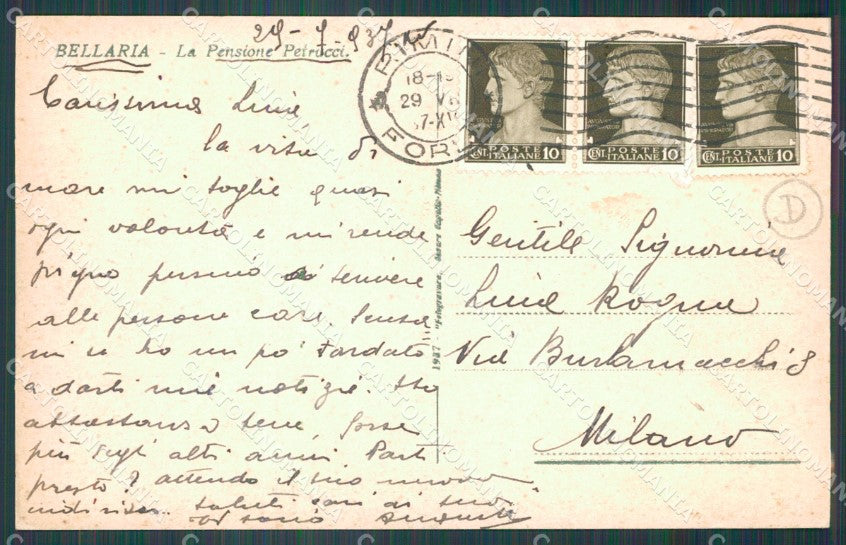 29-7-937
BELLARIA - La Pensione Petrucci.
RIMINI
18-19
29 VII
37-XV
FORLI
POSTE
ITALIANE
CENT. 10
POSTE
ITALIANE
CENT. 10
POSTE
ITALIANE
CENT. 10
D
Carissima Lina
la vita di
mare mi toglie quasi
ogni volontà e mi rende
pigro persino a scrivere
alle persone care. Scusa
mi se ho un po' tardato
a darti mie notizie. Sto
abbastanza bene, forse
più degli altri anni. Parti
presto? attendo il tuo nuovo
indirizzo. saluti cari ai tuoi
Gentile Signorina
Lina Rogna
Via Burlamacchi 8
Milano
1937
CARTOLINOMANIA